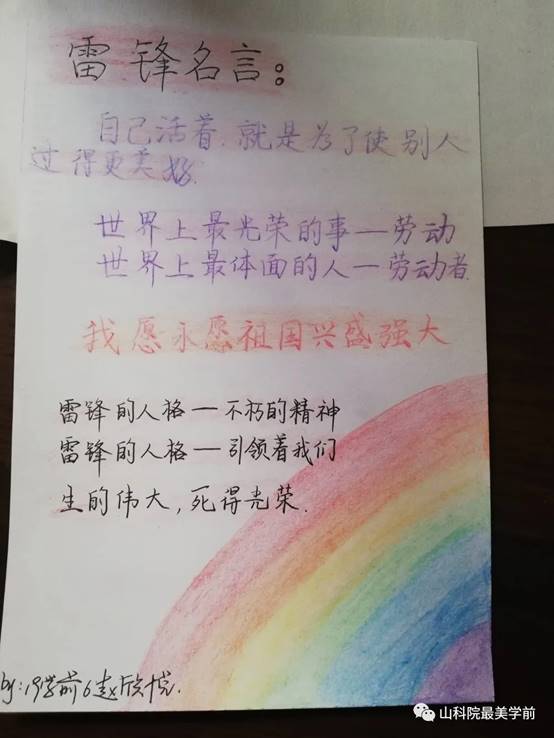 雷锋名言：
自己活着，就是为了使别人
过得更美好.
世界上最光荣的事—劳动
世界上最体面的人—劳动者
我愿永愿祖国兴盛强大
雷锋的人格—不朽的精神
雷锋的人格—引领着我们
生的伟大，死得光荣.
by:19学前6赵欣悦.
山科院最美学前